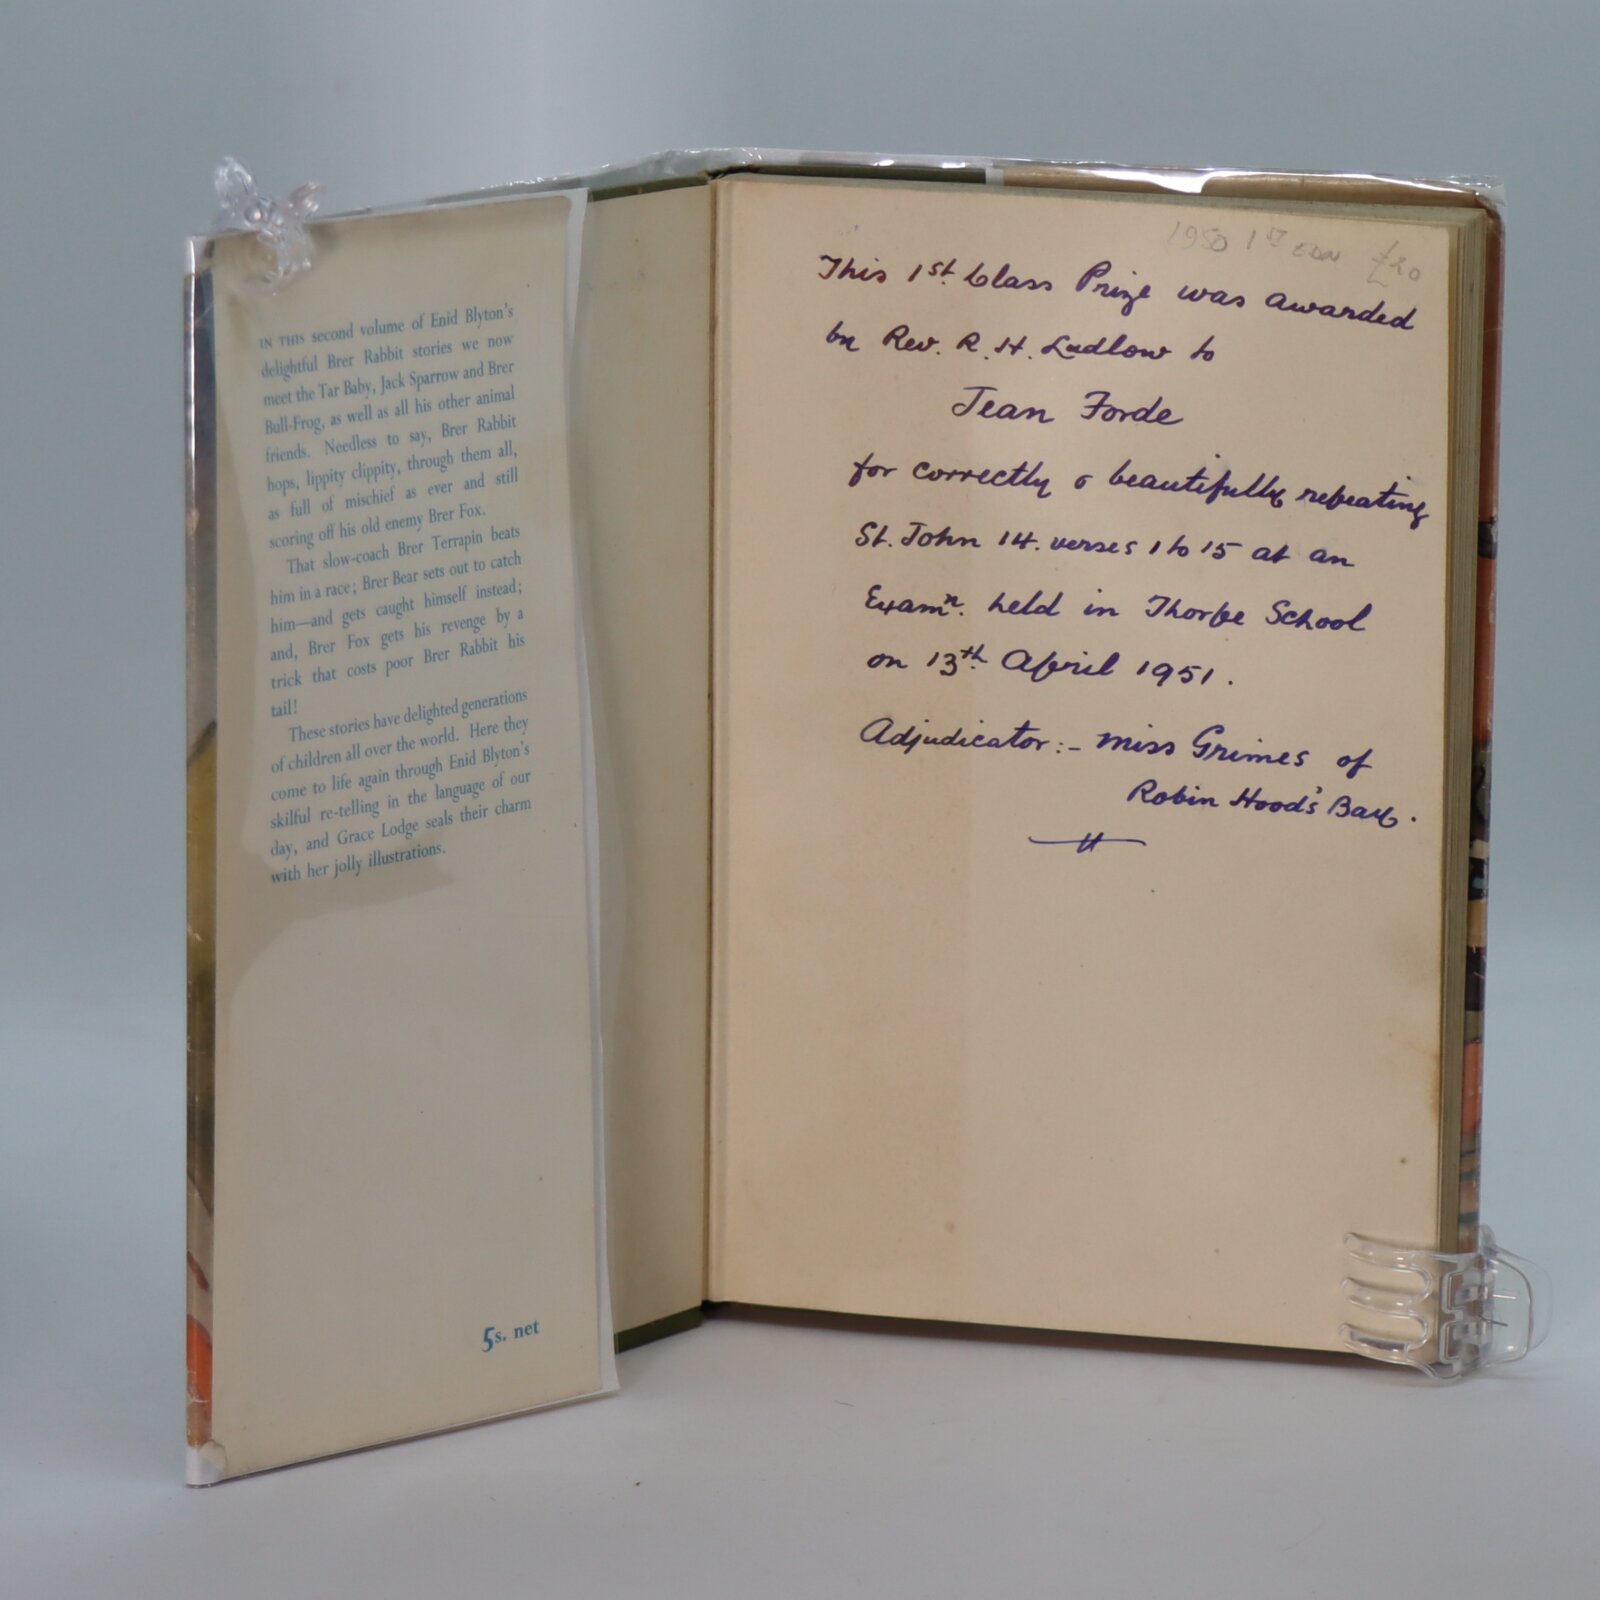 IN THIS second volume of Enid Blyton's
delightful Brer Rabbit stories we now
meet the Tar Baby, Jack Sparrow and Brer
Bull-Frog, as well as all his other animal
friends. Needless to say, Brer Rabbit
hops, lippity clippity, through them all,
as full of mischief as ever and still
scoring off his old enemy Brer Fox.
That slow-coach Brer Terrapin beats
him in a race; Brer Bear sets out to catch
him—and gets caught himself instead;
and, Brer Fox gets his revenge by a
trick that costs poor Brer Rabbit his
tail!
These stories have delighted generations
of children all over the world. Here they
come to life again through Enid Blyton's
skilful re-telling in the language of our
day, and Grace Lodge seals their charm
with her jolly illustrations.
5s. net
1950 1st EDN
This 1st. Class Prize was awarded
by Rev. R. H. Ludlow to
Jean Forde
for correctly & beautifully repeating
St. John 14. verses 1 to 15 at an
Examn. held in Thorpe School
on 13th April 1951.
Adjudicator:- Miss Grimes of
Robin Hood's Bay.